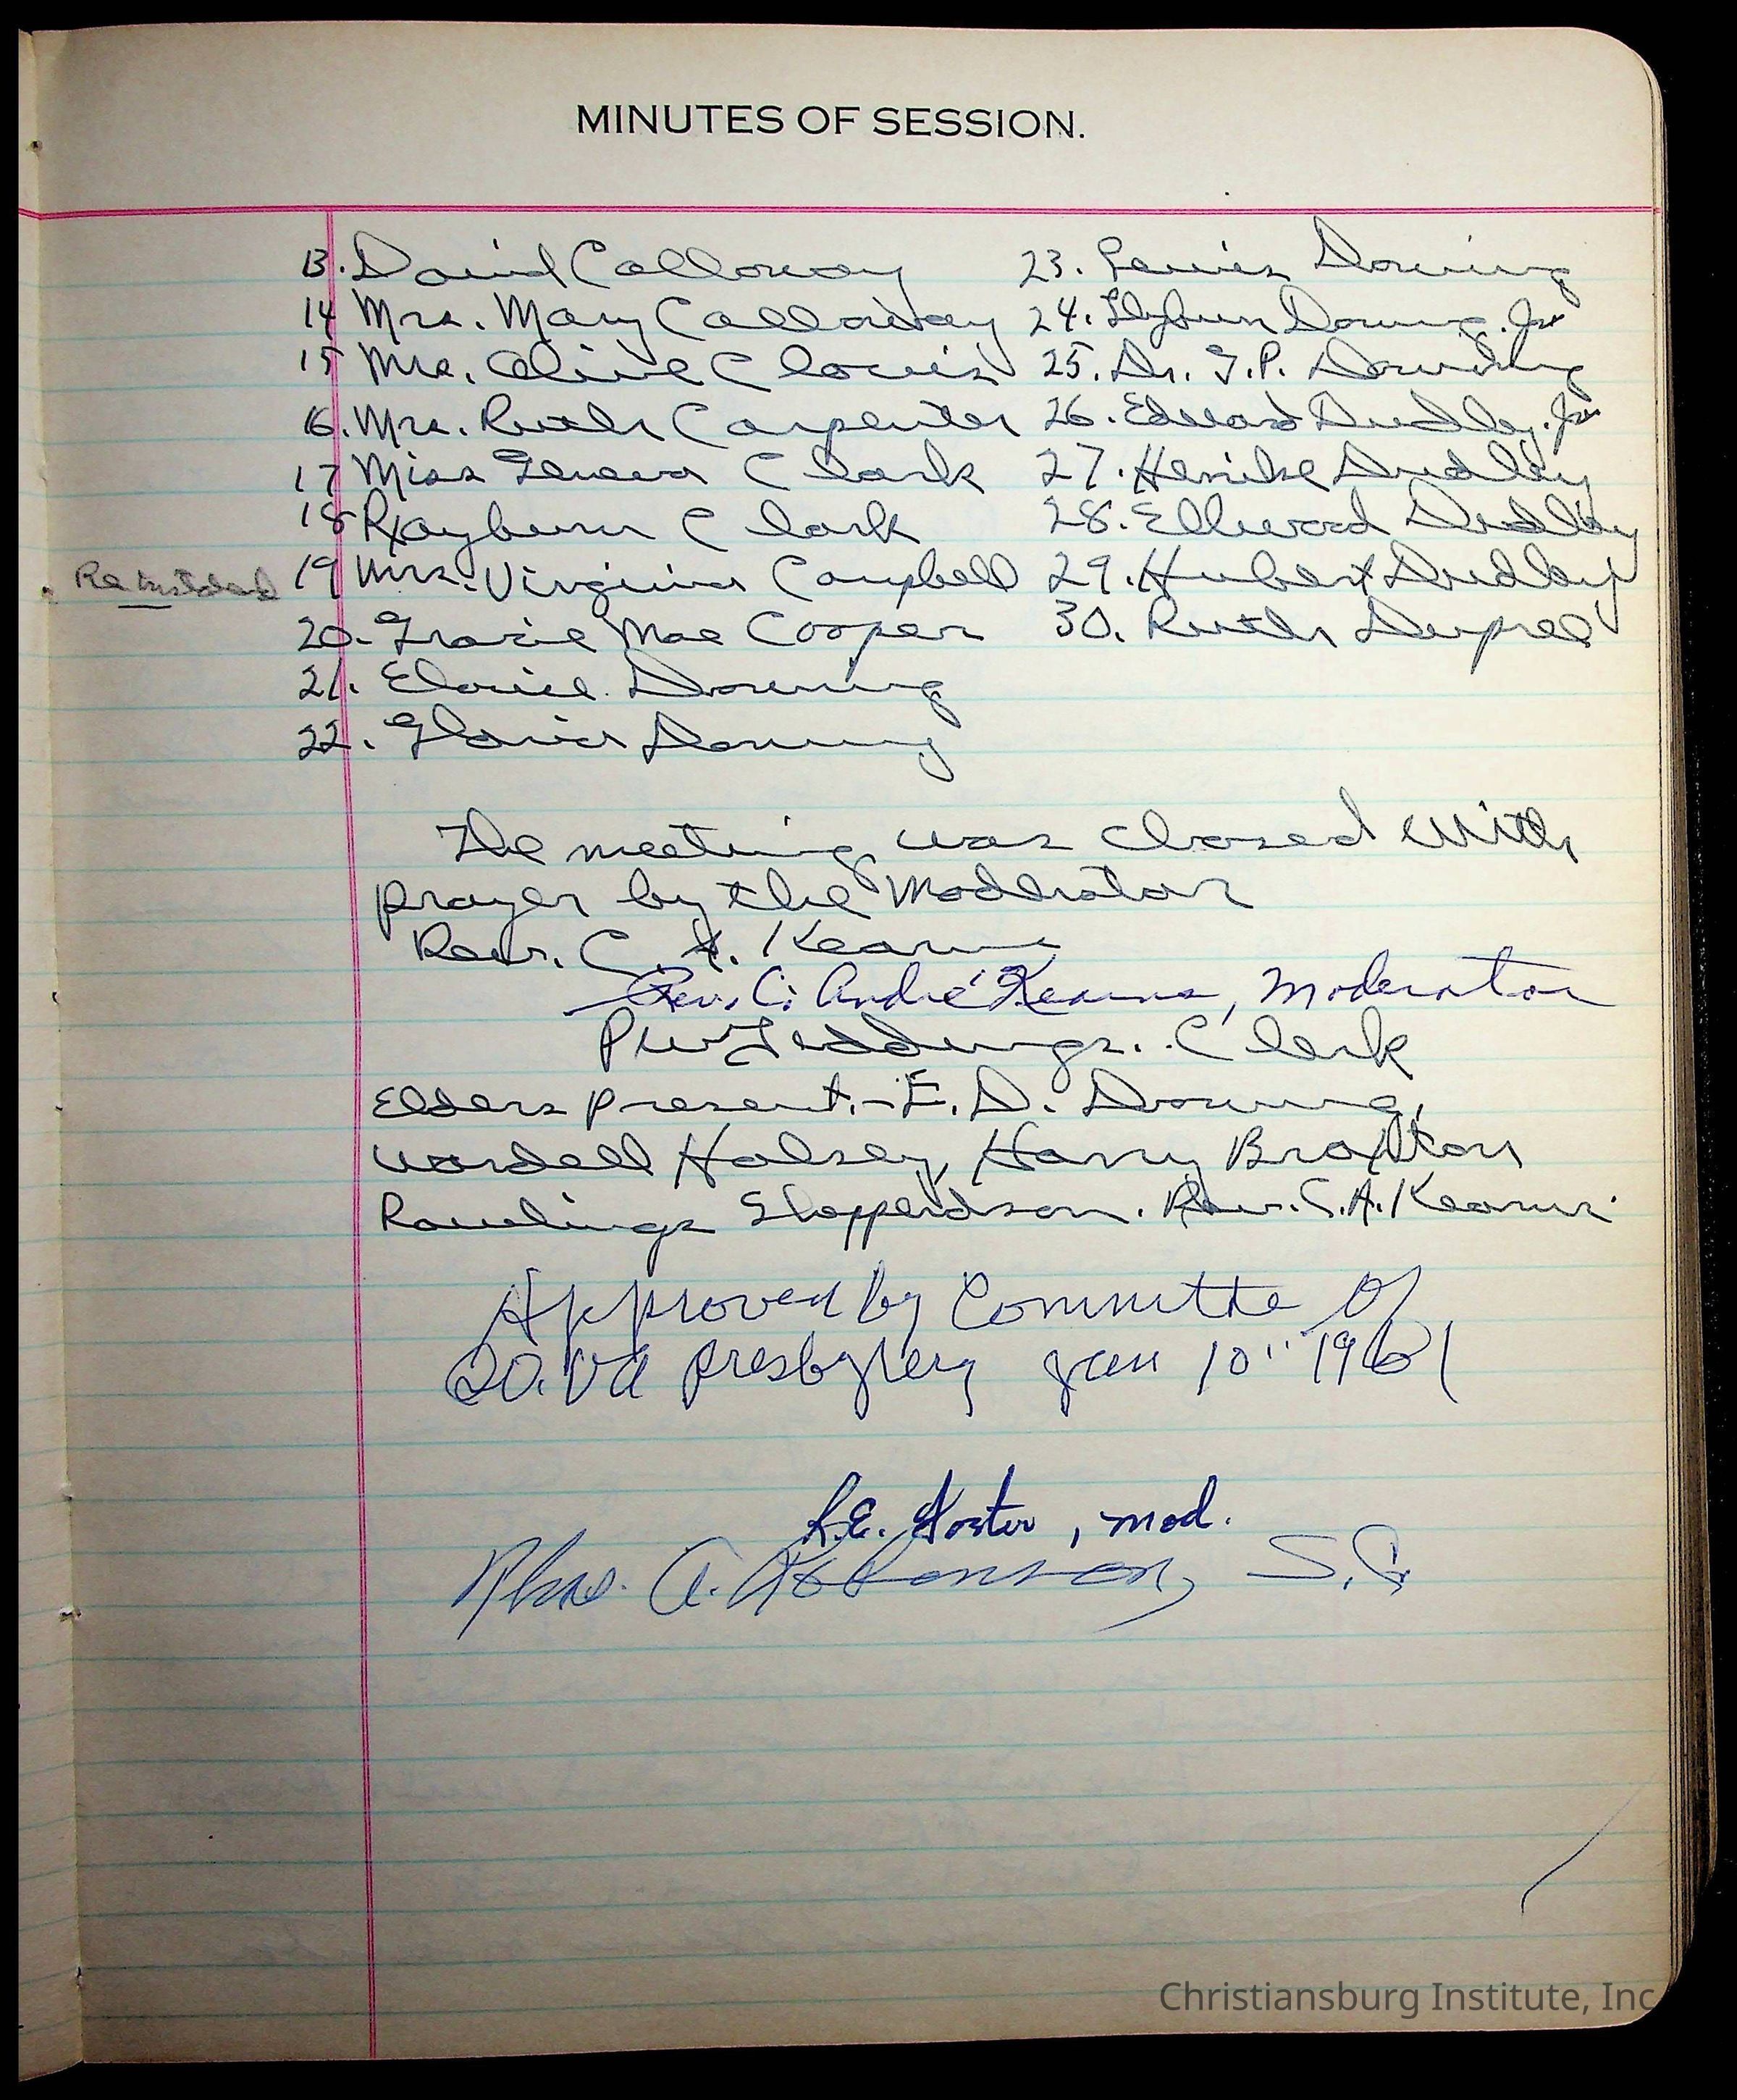 MINUTES OF SESSION.
13. David Calloway
14 Mrs. Mary Calloway
15 Mrs. Olive Clowis
16. Mrs. Ruth Carpenter
17 Miss Geneva Clark
18 Rayburn Clark
19 Mrs. Virginia Campbell
20. Gracie Mae Cooper
21. Eloise Downing
22. Gloria Downing
23. Lewis Downing
24. Downing. Jr
25. Dr. J.P. Downing
26. Edward Dudley. Jr
27. Henike Dudley
28. Ellwood Dudley
29. Hubert Dudley
30. Ruth Dupree
The meeting was closed with
prayer by the Moderator
Rev. C. A. Kearns
Rev. C. André Kearns, Moderator
Giddings. Clerk
Elders present. - E. D. Downing,
Wardell Halsey, Harry Braxton
Rawlings Shepperdson. Rev. C. A. Kearns.
Approved by Committe of
So. Va Presbytery Jan 10" 1961
Foster, mod.
A. Robinson, S.C.
Christiansburg Institute, Inc